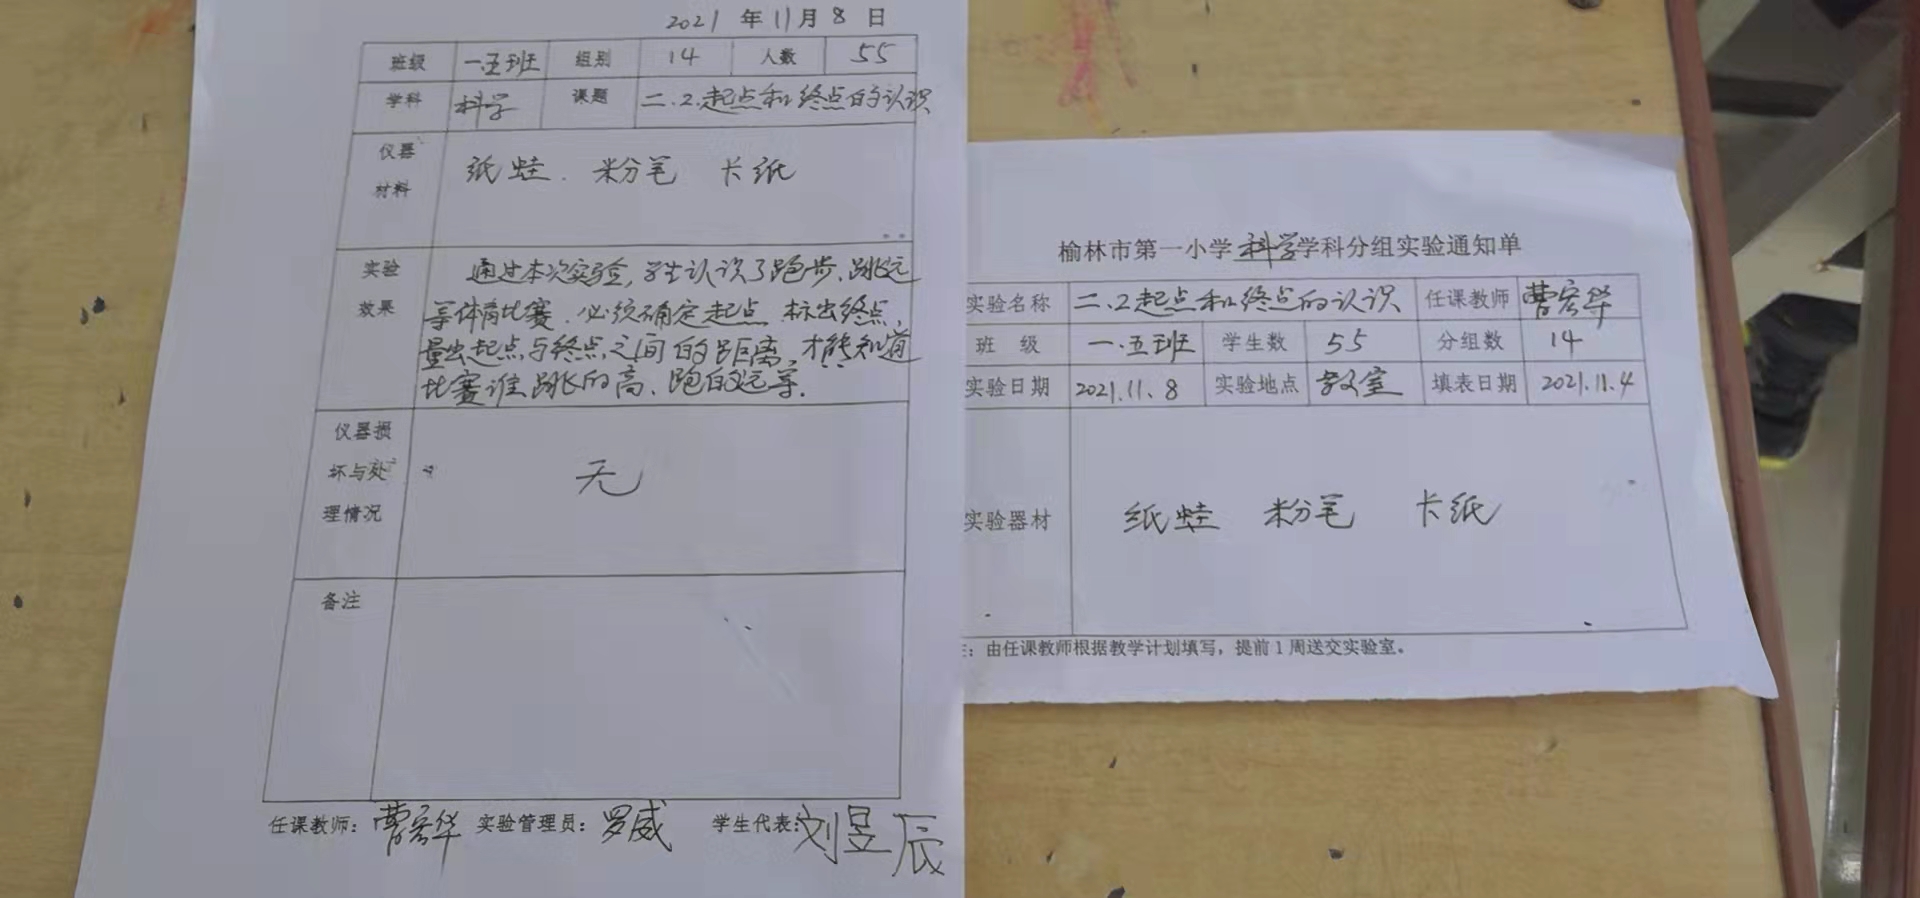 2021 年 11 月 8 日
班级 一.五班 组别 14 人数 55
学科 科学 课题 二.2.起点和终点的认识
仪器
材料
纸蛙. 粉笔 卡纸
实验
效果
通过本次实验,学生认识了跑步、跳远
等体育比赛.必须确定起点 标出终点,
量出起点与终点之间的距离,才能知道
比赛谁跳的高、跑的远等.
仪器损
坏与处
理情况
无
备注
任课教师: 曹 华 实验管理员: 罗威 学生代表: 刘昱辰
榆林市第一小学 科学 学科分组实验通知单
实验名称 二.2起点和终点的认识 任课教师 曹 华
班 级 一.五班 学生数 55 分组数 14
实验日期 2021.11.8 实验地点 教室 填表日期 2021.11.4
实验器材 纸蛙 粉笔 卡纸
注: 由任课教师根据教学计划填写, 提前 1 周送交实验室。